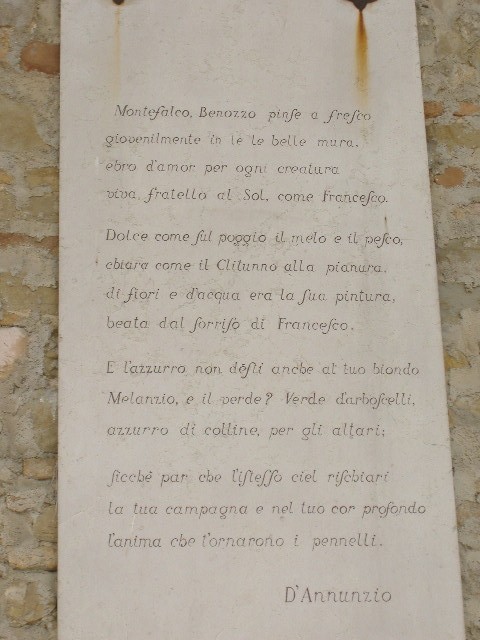 Montefalco, Benozzo pinse a fresco
giovenilmente in te le belle mura,
ebro d'amor per ogni creatura
viva, fratello al Sol, come Francesco.
Dolce come sul poggio il melo e il pesco,
chiara come il Clitunno alla pianura,
di fiori e d'acqua era la sua pintura,
beata dal sorriso di Francesco.
E l'azzurro non désti anche al tuo biondo
Melanzio, e il verde? Verde d'arboscelli,
azzurro di colline, per gli altari;
sicché par che l'istesso ciel rischiari
la tua campagna e nel tuo cor profondo
l'anima che t'ornarono i pennelli.
D'Annunzio